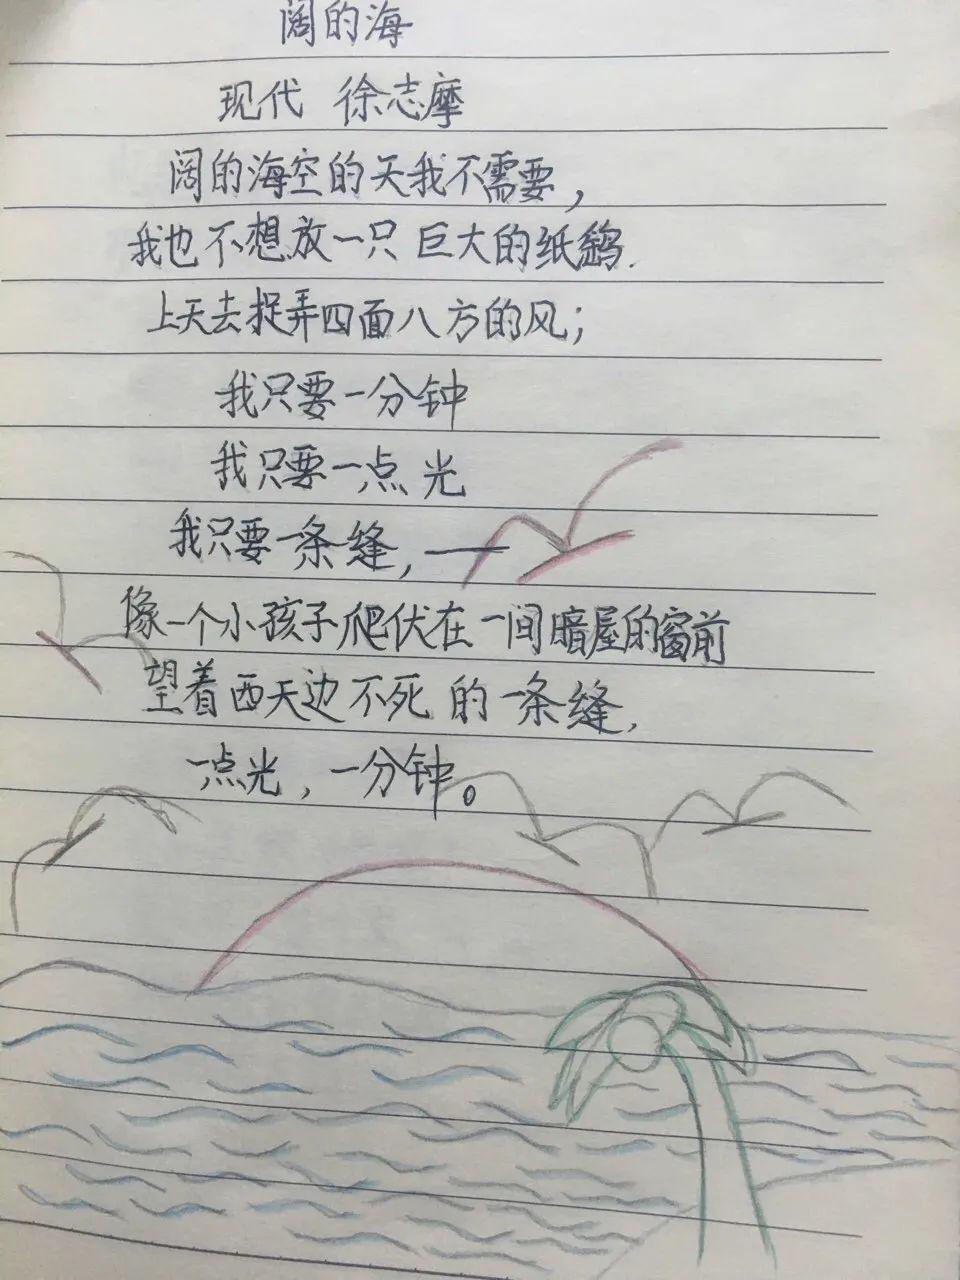 阔的海
现代 徐志摩
阔的海空的天我不需要，
我也不想放一只巨大的纸鹞.
上天去捉弄四面八方的风；
我只要一分钟
我只要一点光
我只要一条缝，——
像一个小孩子爬伏在一间暗屋的窗前
望着西天边不死的一条缝，
一点光，一分钟。